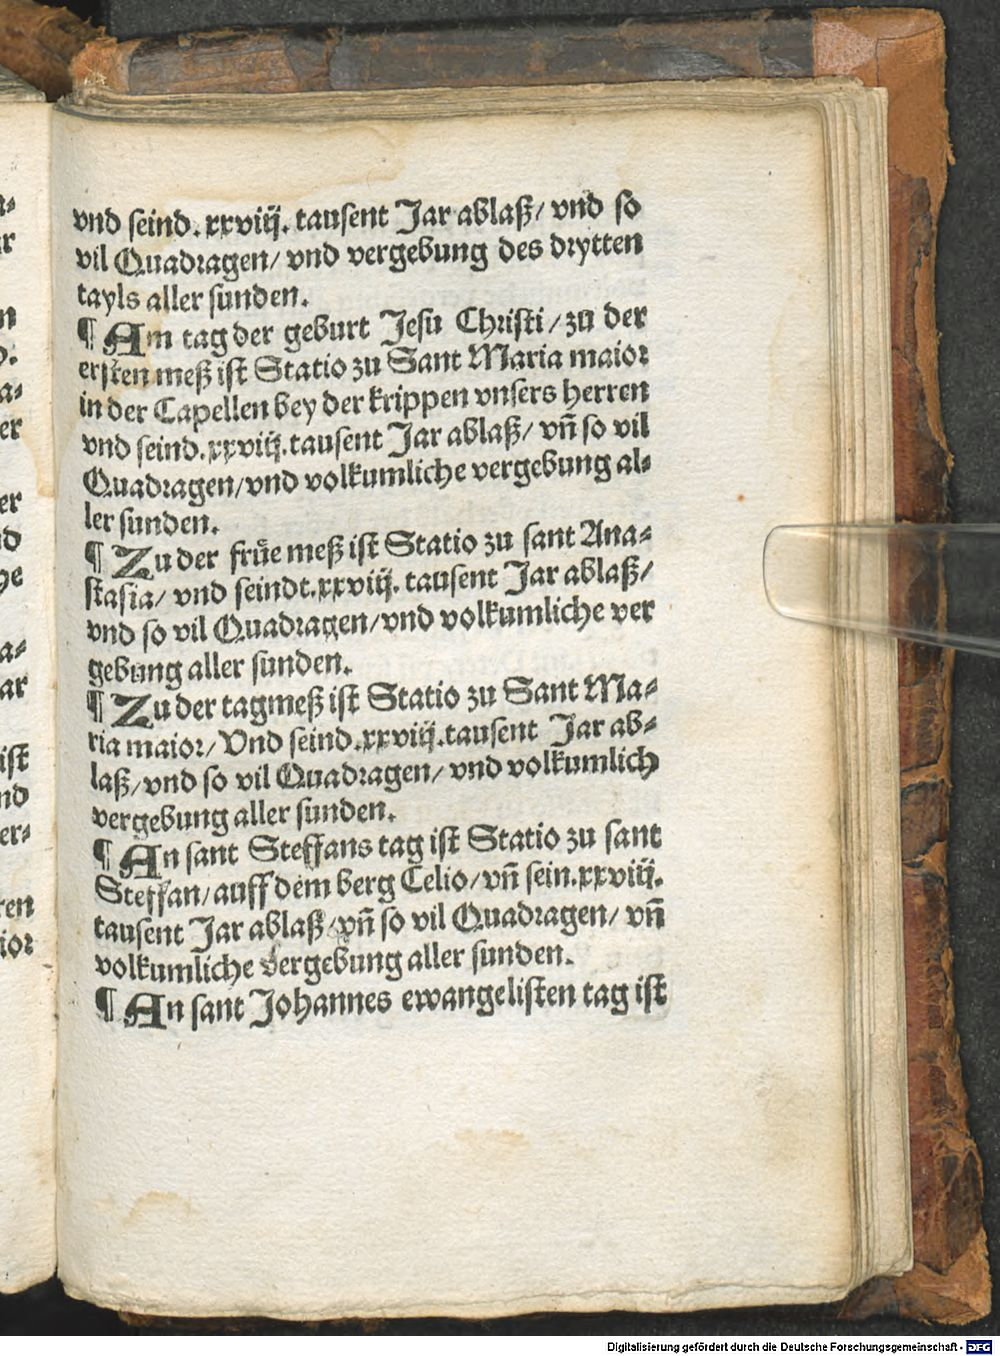 vnd seind. xxviij. tausent Jar ablaß/ vnd so
vil Quadragen/ vnd vergebung des drytten
tayls aller sunden.
¶ Am tag der geburt Jesu Christi/ zu der
ersten meß ist Statio zu Sant Maria maior
in der Capellen bey der krippen vnsers herren
vnd seind. xxviij. tausent Jar ablaß/ vn̄ so vil
Quadragen/ vnd volkumliche vergebung al-
ler sunden.
¶ Zu der frůe meß ist Statio zu sant Ana-
stasia/ vnd seindt. xxviij. tausent Jar ablaß/
vnd so vil Quadragen/ vnd volkumliche ver
gebung aller sunden.
¶ Zu der tagmeß ist Statio zu Sant Ma-
ria maior/ Vnd seind. xxviij. tausent Jar ab-
laß/ vnd so vil Quadragen/ vnd volkumlich
vergebung aller sunden.
¶ An sant Steffans tag ist Statio zu sant
Steffan/ auff dem berg Celio/ vn̄ sein. xxviij.
tausent Jar ablaß/ vn̄ so vil Quadragen/ vn̄
volkumliche vergebung aller sunden.
¶ An sant Johannes ewangelisten tag ist
Digitalisierung gefördert durch die Deutsche Forschungsgemeinschaft - DFG